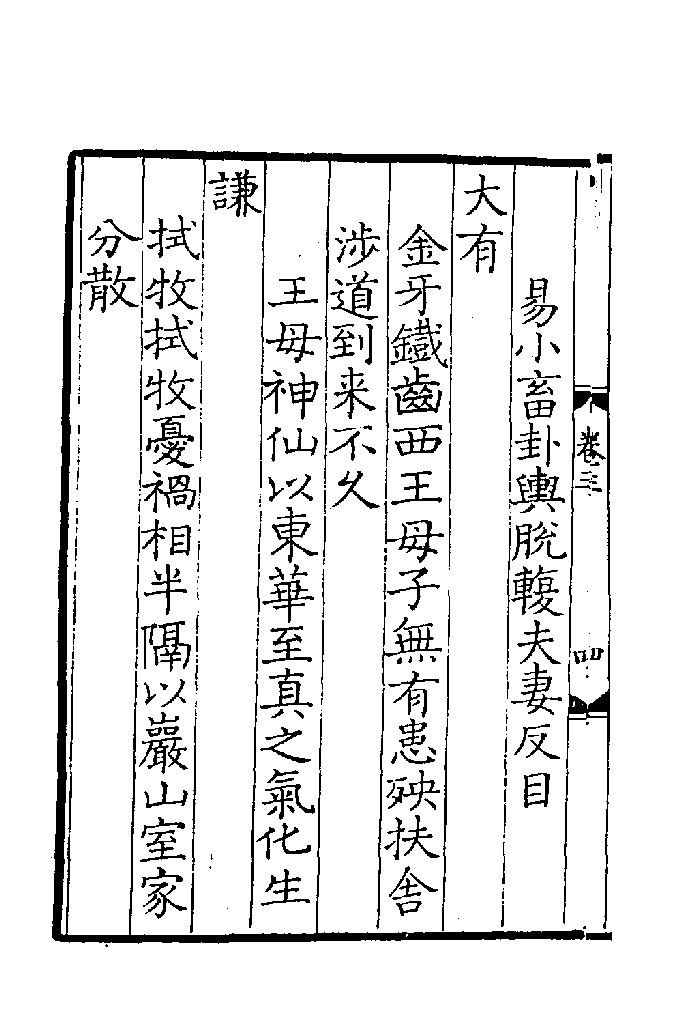 卷三
四
易小畜卦輿脫輹夫妻反目
大有
金牙鐵齒西王母子無有患殃扶舍
涉道到来不久
王母神仙以東華至真之氣化生
謙
拭牧拭牧憂禍相半隔以巖山室家
分散